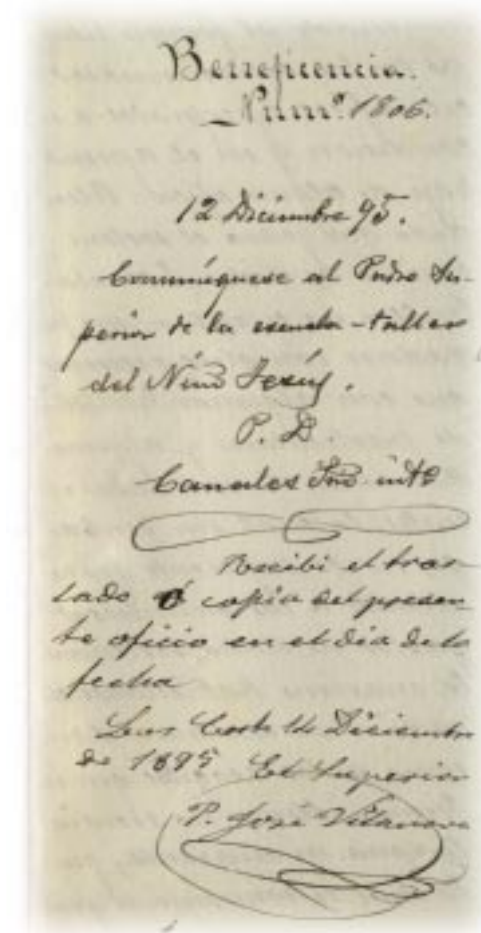 Beneficencia.
Númº 1806.
12 Diciembre 95.
Comuníquese al Padre Su-
perior de la escuela-taller
del Niño Jesús.
P. D
Canales
Recibi el tras-
lado ó copia del presen-
te oficio en el dia de la
fecha
Corts 14 Diciembre
de 1895 El Superior
P. José Vilanova